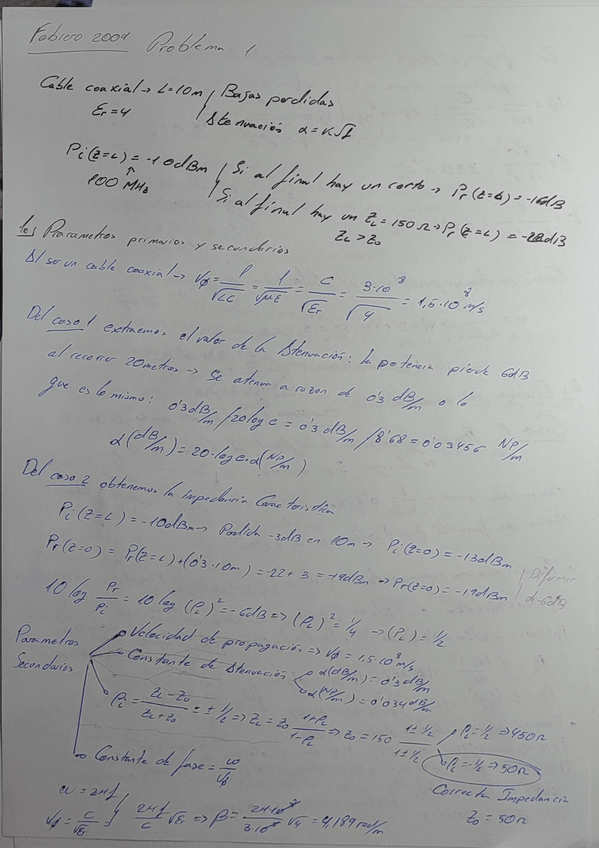 Febrero 2009 Problema 1
Cable coaxial → L=10m
Er=4
Bajas perdidas
Atenuación α = K√f
Pi(z=L) = -10dBm
↑
100 MHz
Si al final hay un corto → Pr(z=L) = -16dB
Si al final hay un ZL = 150Ω → Pr(z=L) = -22dB
ZL > Z0
1º) Parametros primarios y secundarios
Al ser un cable coaxial → Vϕ = 1/√LC = 1/√με = C/√Er = 3·10⁸/√4 = 1,5·10⁸ m/s
Del caso 1 extraemos el valor de la Atenuación: la potencia pierde 6dB
al recorrer 20metros → Se atenua a razon de 0'3 dB/m o lo
que es lo mismo: 0'3 dB/m /20log e = 0'3 dB/m /8'68 = 0'03456 Np/m
α(dB/m) = 20·log e·α(Np/m)
Del caso 2 obtenemos la impedancia Caracteristica
Pi(z=L) = -10dBm → Perdida -3dB en 10m → Pi(z=0) = -13dBm
Pr(z=0) = Pr(z=L)+(0'3·10m) = -22+3 = -19dBm ⇒ Pr(z=0) = -19dBm
de 6dB
10 log Pr/Pi = 10 log (ρL)² = -6dB ⇒ (ρL)² = 1/4 → (ρL) = 1/2
Parametros
Secundarios
Velocidad de propagación ⇒ Vϕ = 1,5·10⁸ m/s
Constante de Atenuación
α(dB/m) = 0'3 dB/m
α(Np/m) = 0'034 dB/m
ρL = ZL-Z0/ZL+Z0 = ± 1/2 ⇒ ZL = Z0 1+ρL/1-ρL ⇒ Z0 = 150 1±1/2/1±1/2
ρL = 1/2 ⇒ 450Ω
ρL = -1/2 ⇒ 50Ω
Constante de fase = ω/Vϕ
Correcta Impedancia
Z0 = 50Ω
ω = 2πf
Vϕ = C/√Er
2πf/C √Er ⇒ β = 2π·10⁸/3·10⁸ √4 = 4,189 rad/m